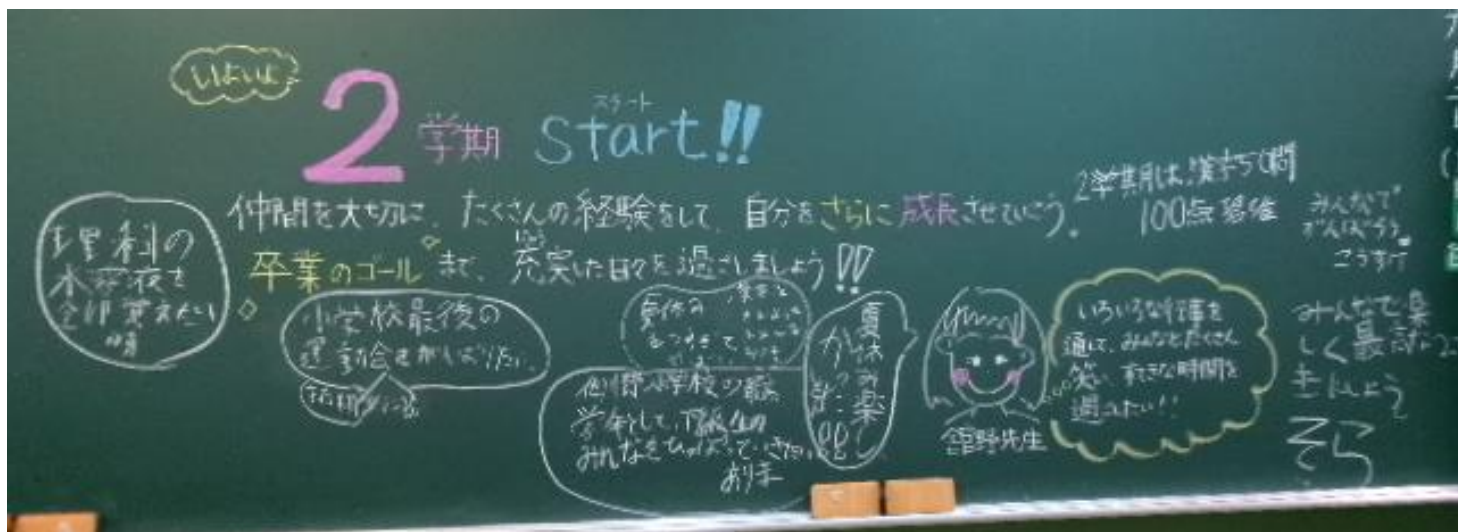 いよいよ
2学期 Start!!
スタート
仲間を大切に、たくさんの経験をして、自分をさらに成長させていこう。
卒業のゴールまで、充実した日々を過ごしましょう!!
じゅう
2学期は漢字50問
100点
みんなで
がんばろう。
こうすけ
理科の
水溶液を
全部覚えたい
晴
小学校最後の
運動会をがんばりたい。
夏休み
夏休み楽し
かった!!
小学校の最高
学年として、下級生の
みんなをひっぱっていきたい。
ありま
舘野先生
いろいろな行事を
通して、みんなとたくさん
笑い、すてきな時間を
過ごしたい!!
みんなで楽
しく最高の2
きにしよう
そら